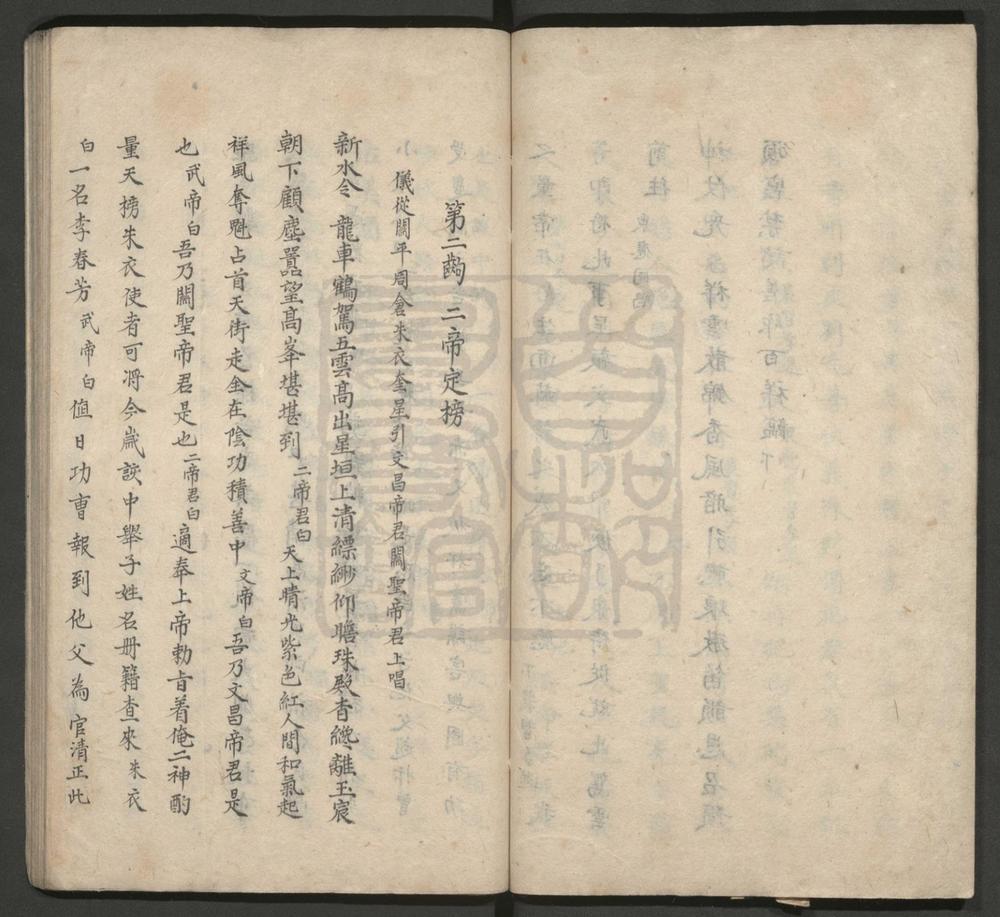 第二齣二帝定榜
儀從關平周倉朱衣奎星引文昌帝君關聖帝君上唱
新水令 龍車鶴駕五雲高出星垣上清縹緲仰瞻珠殿杳纔離玉宸
朝下顧塵囂望高峯堪堪到 二帝君白 天上晴光紫色紅人間和氣起
祥風奪魁占首天街走全在陰功積善中 文帝白 吾乃文昌帝君是
也 武帝白 吾乃關聖帝君是也 二帝君白 適奉上帝勅旨着俺二神酌
量天榜朱衣使者可將今歲該中舉子姓名册籍查來 朱衣
白 一名李春芳 武帝白 值日功曹報到他父為官清正此